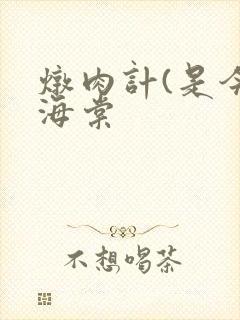 燉肉計(是今
海棠
不想喝茶